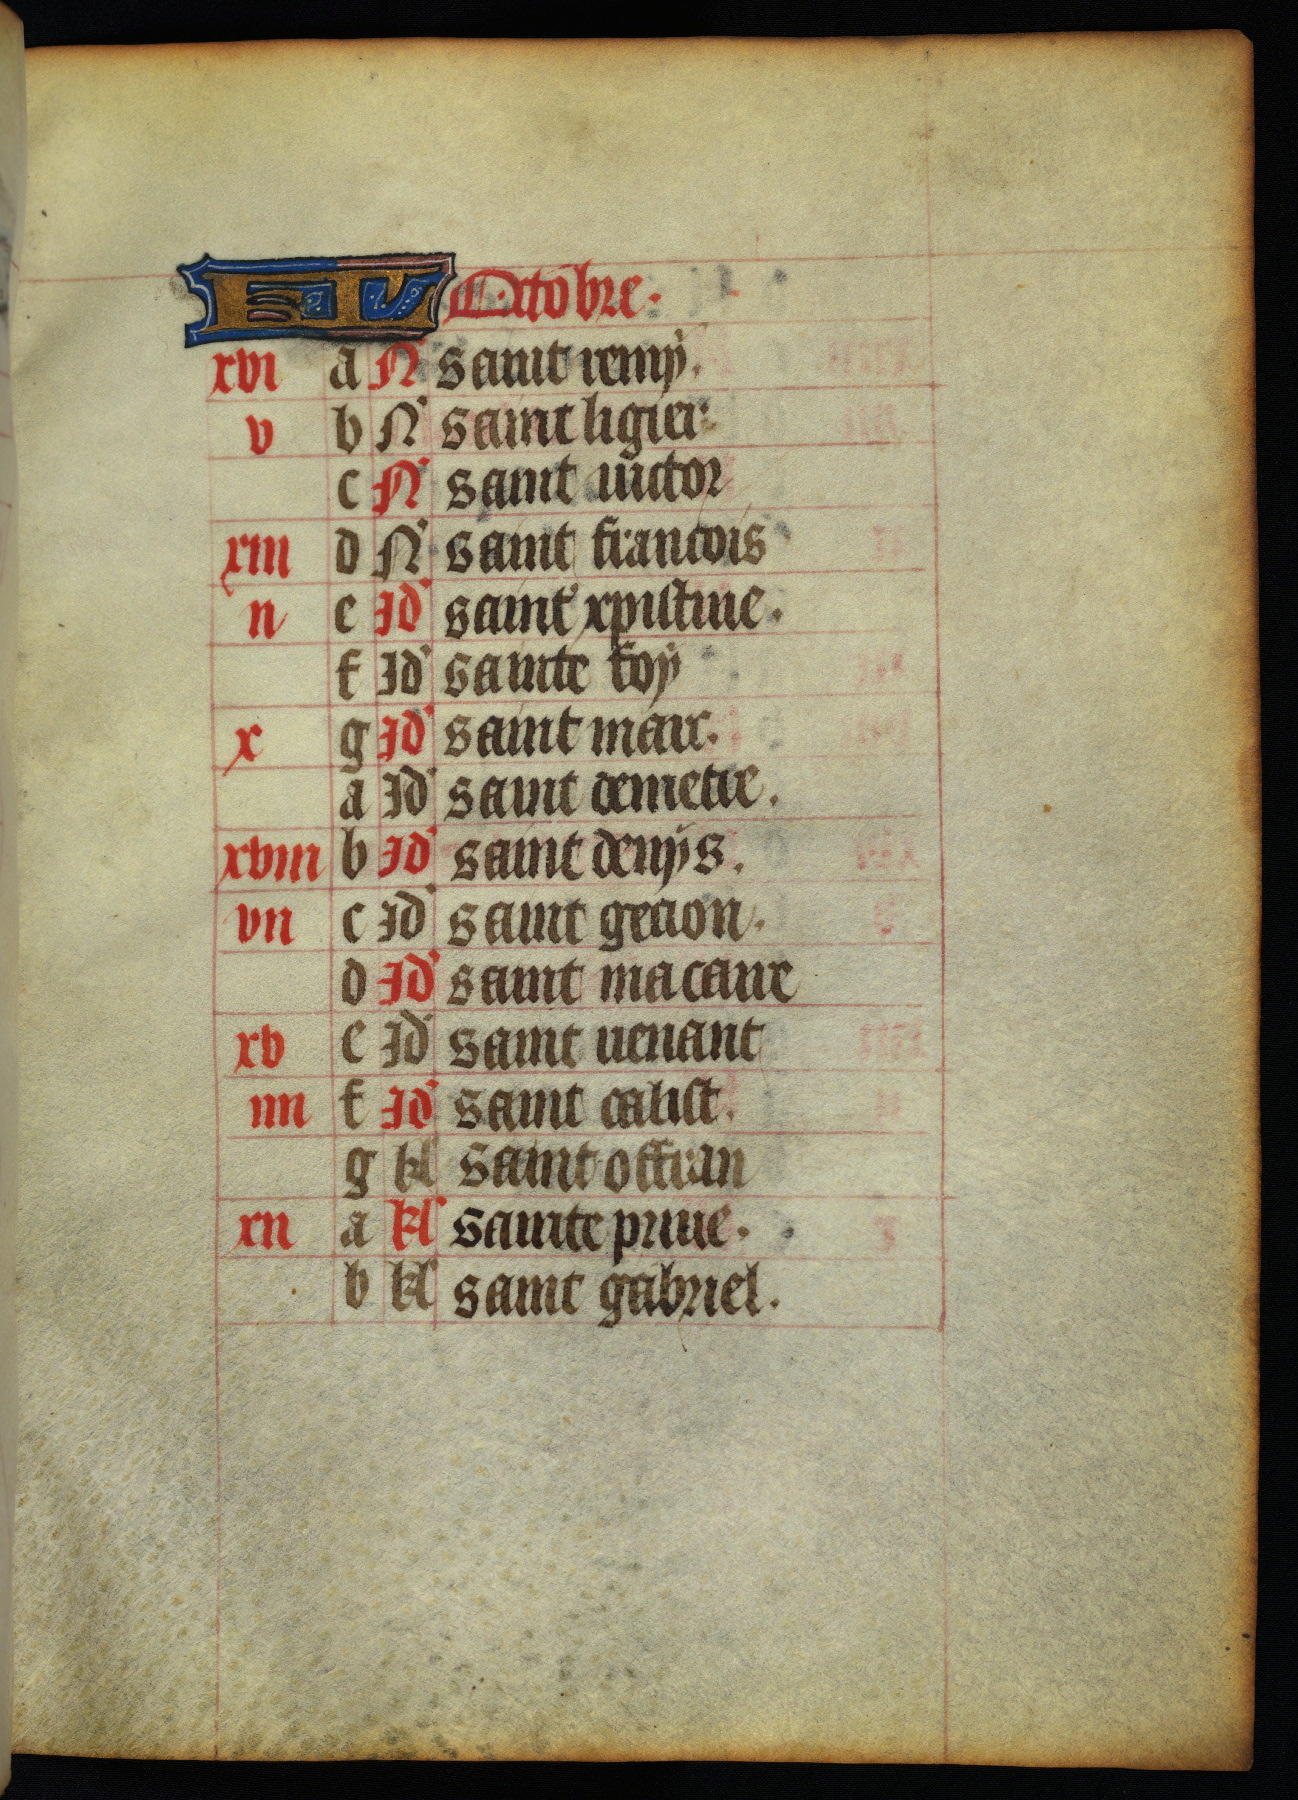 KL Octobre.
xvi a N saint remy.
v b N saint ligier
c N saint uictor
xiii d N saint francois
ii e Id saint xpistine.
f Id sainte foy
x g Id saint marc.
a Id saint demetre.
xviii b Id saint denys.
vii c Id saint gerion.
d Id saint macaire
xv e Id saint uenant
iiii f Id saint calist.
g kl saint offran
xii a kl sainte priue.
b kl saint gabriel.